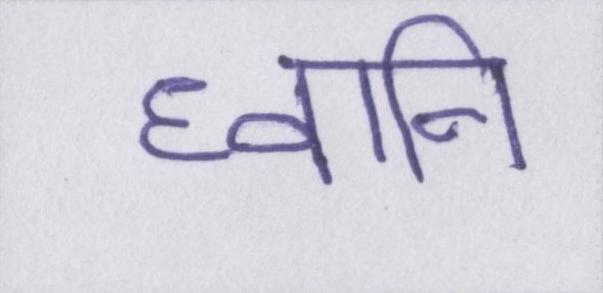 ध्वानि